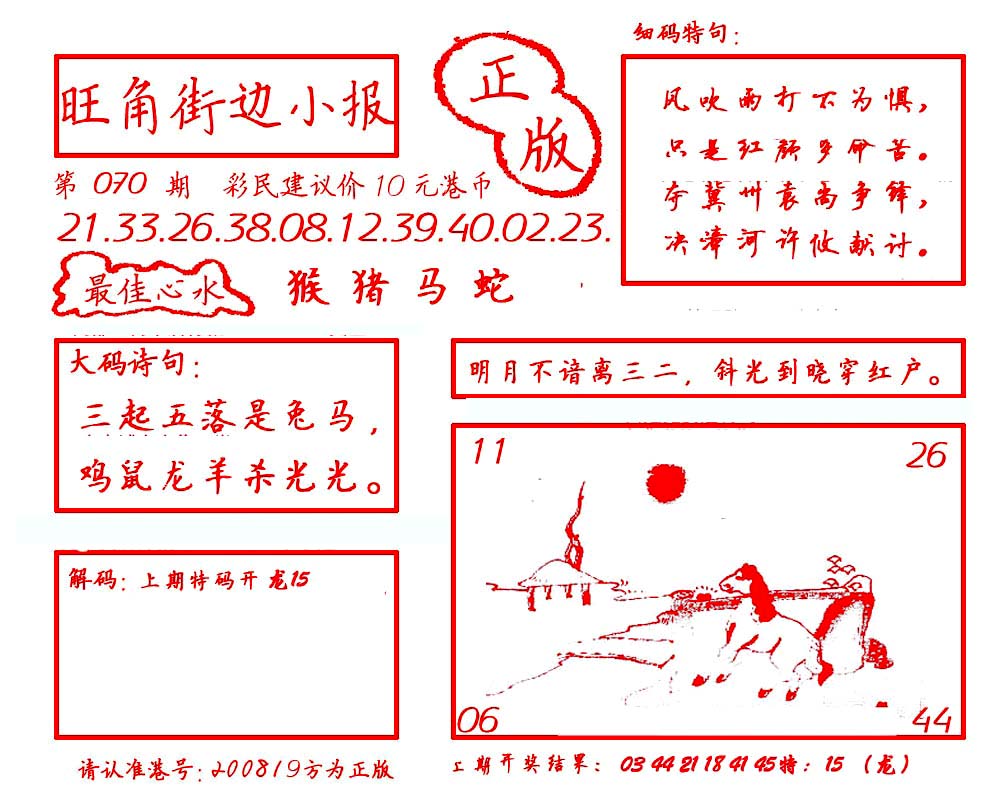 细码特句：
旺角街边小报
正版
风吹雨打不为惧，
只是红颜多命苦。
夺冀州袁尚争锋，
决漳河许攸献计。
第 070 期 彩民建议价10元港币
21.33.26.38.08.12.39.40.02.23.
最佳心水 猴猪马蛇
大码诗句：
三起五落是兔马，
鸡鼠龙羊杀光光。
明月不谙离三二，斜光到晓穿红户。
11
26
06
44
解码：上期特码开龙15
请认准港号：200819方为正版
上期开奖结果：03 44 21 18 41 45特：15（龙）